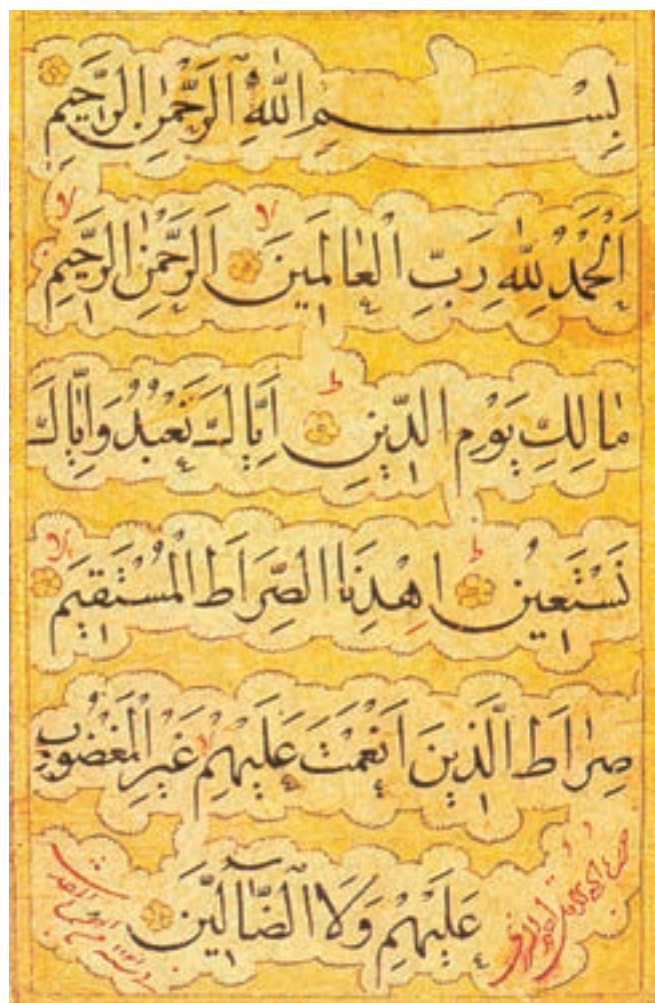 بِسْمِ اللّٰهِ الرَّحْمٰنِ الرَّحِيمِ
اَلْحَمْدُ لِلّٰهِ رَبِّ الْعَالَمِينَ اَلرَّحْمٰنِ الرَّحِيمِ
مَالِكِ يَوْمِ الدِّينِ اِيَّاكَ نَعْبُدُ وَاِيَّاكَ
نَسْتَعِينُ اِهْدِنَا الصِّرَاطَ الْمُسْتَقِيمَ
صِرَاطَ الَّذِينَ اَنْعَمْتَ عَلَيْهِمْ غَيْرِ الْمَغْضُوبِ
عَلَيْهِمْ وَلَا الضَّالِّينَ